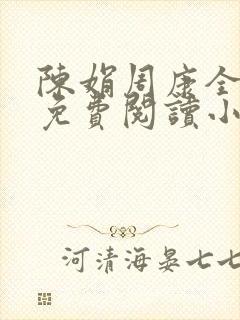 陳娟周康全
免費閱讀小
河清海晏七七